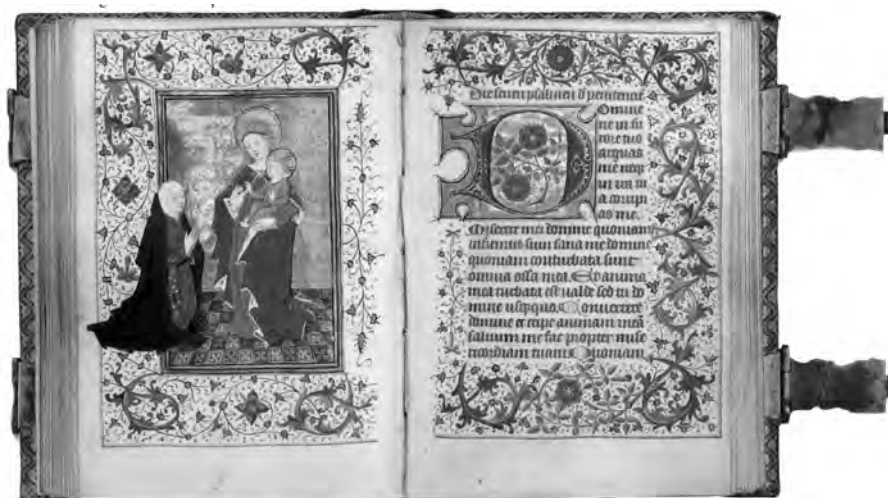 Die seuen psalmen d penitencie
Domine
ne in fu
rore tuo
arguas
me neq
in ira tu
a corripi
as me.
Miserere mei domine quoniam
infirmus sum sana me domine
quoniam conturbata sunt
omnia ossa mea. Et anima
mea turbata est ualde sed tu do
mine usqquo. Conuertere
domine et eripe animam meā
saluum me fac propter mise
ricordiam tuam Quoniam